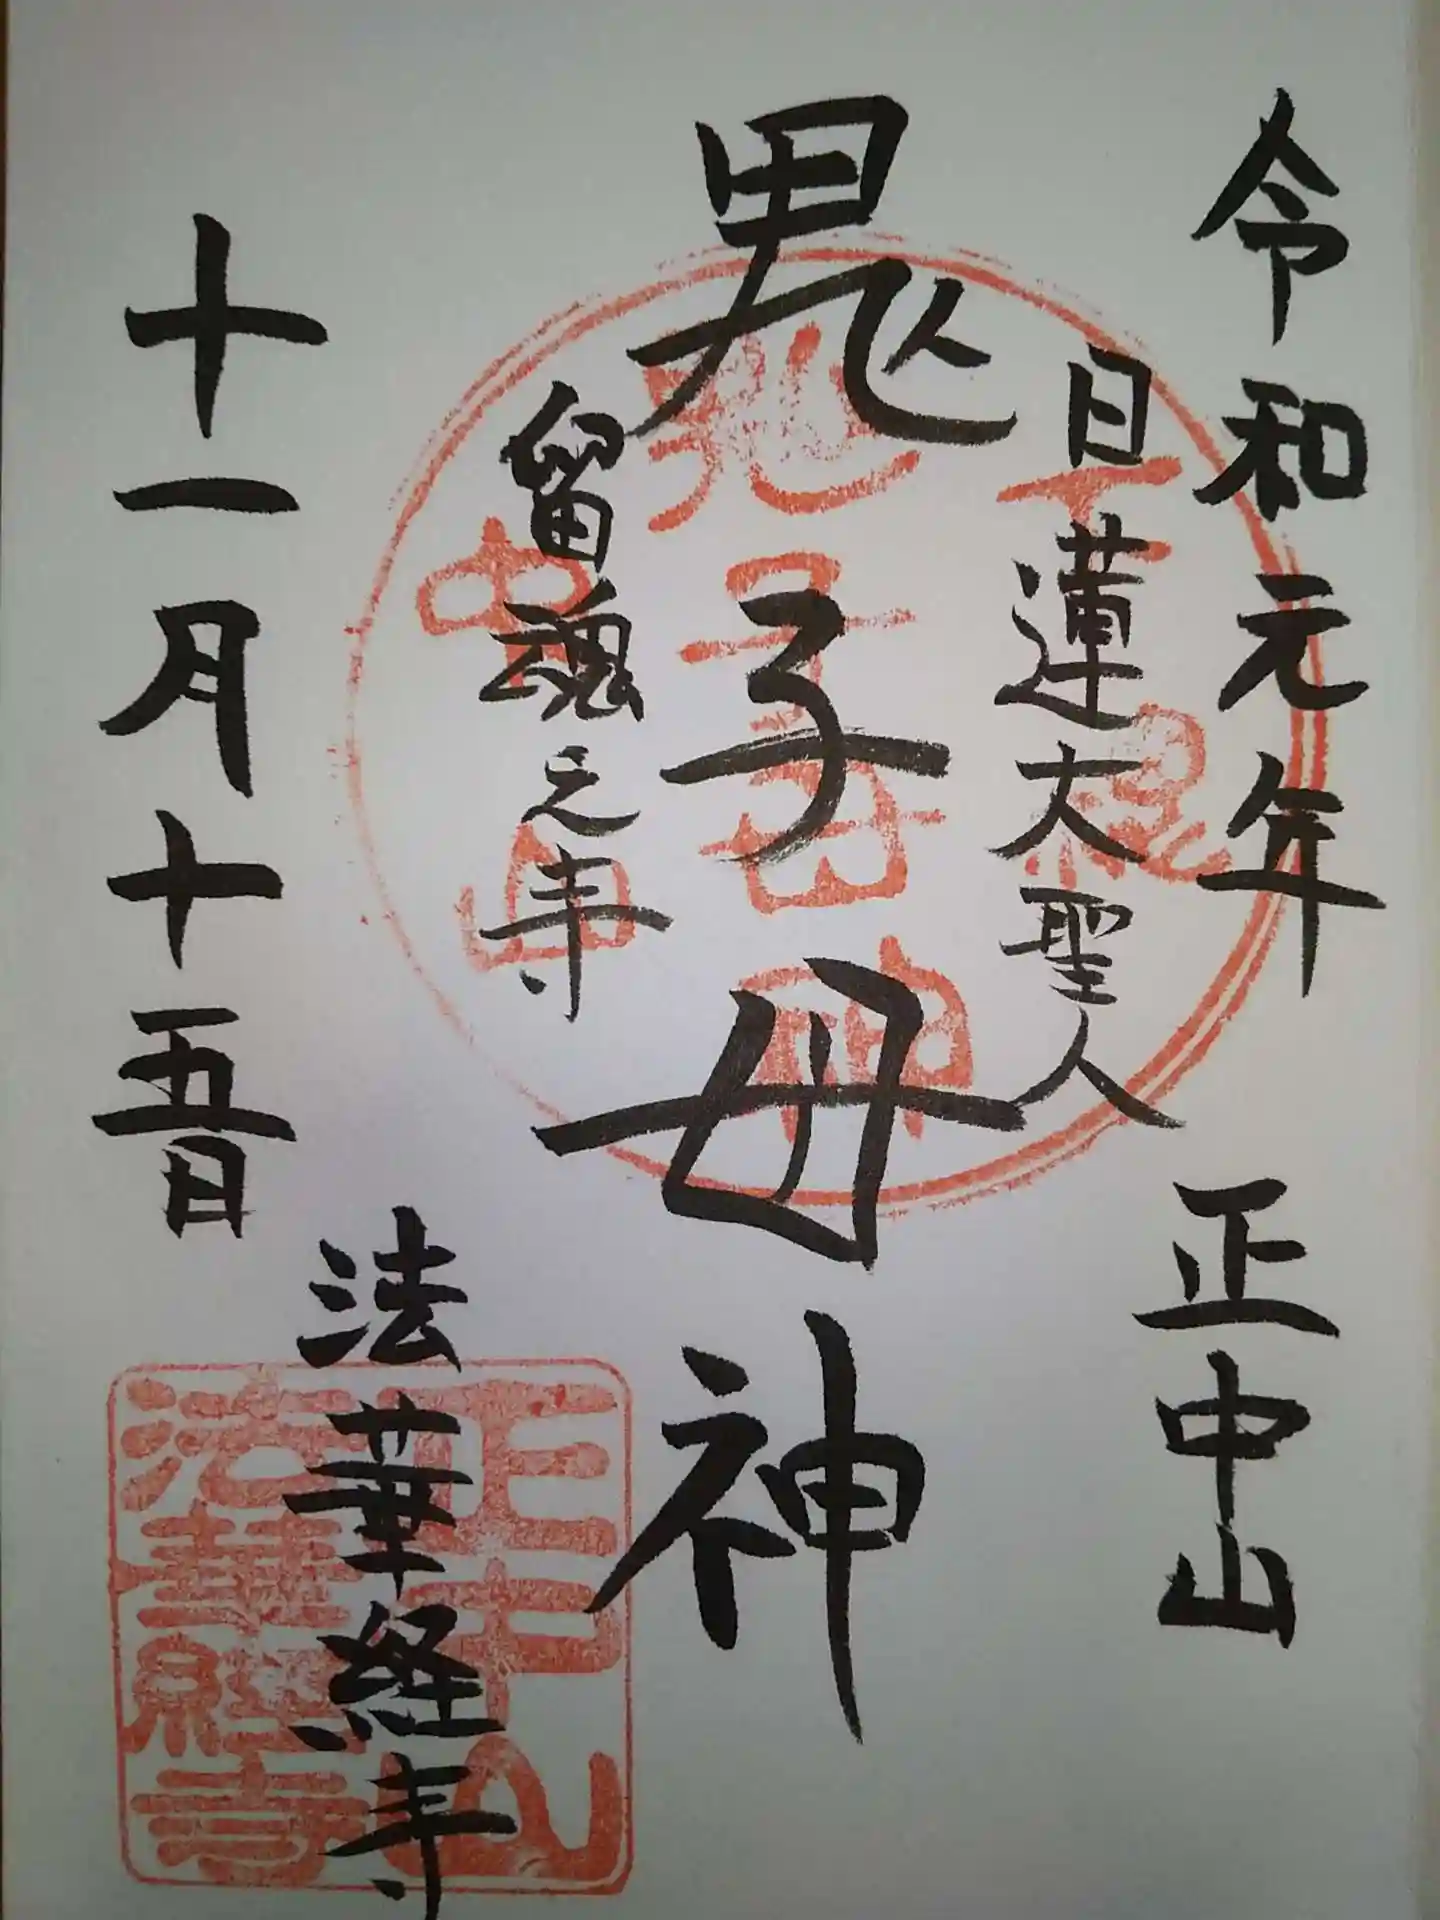 令和元年
正中山
日蓮大聖人
鬼子母神
留魂之寺
法華経寺
十一月十五日
正中山
法華經寺
鬼子母神
中山